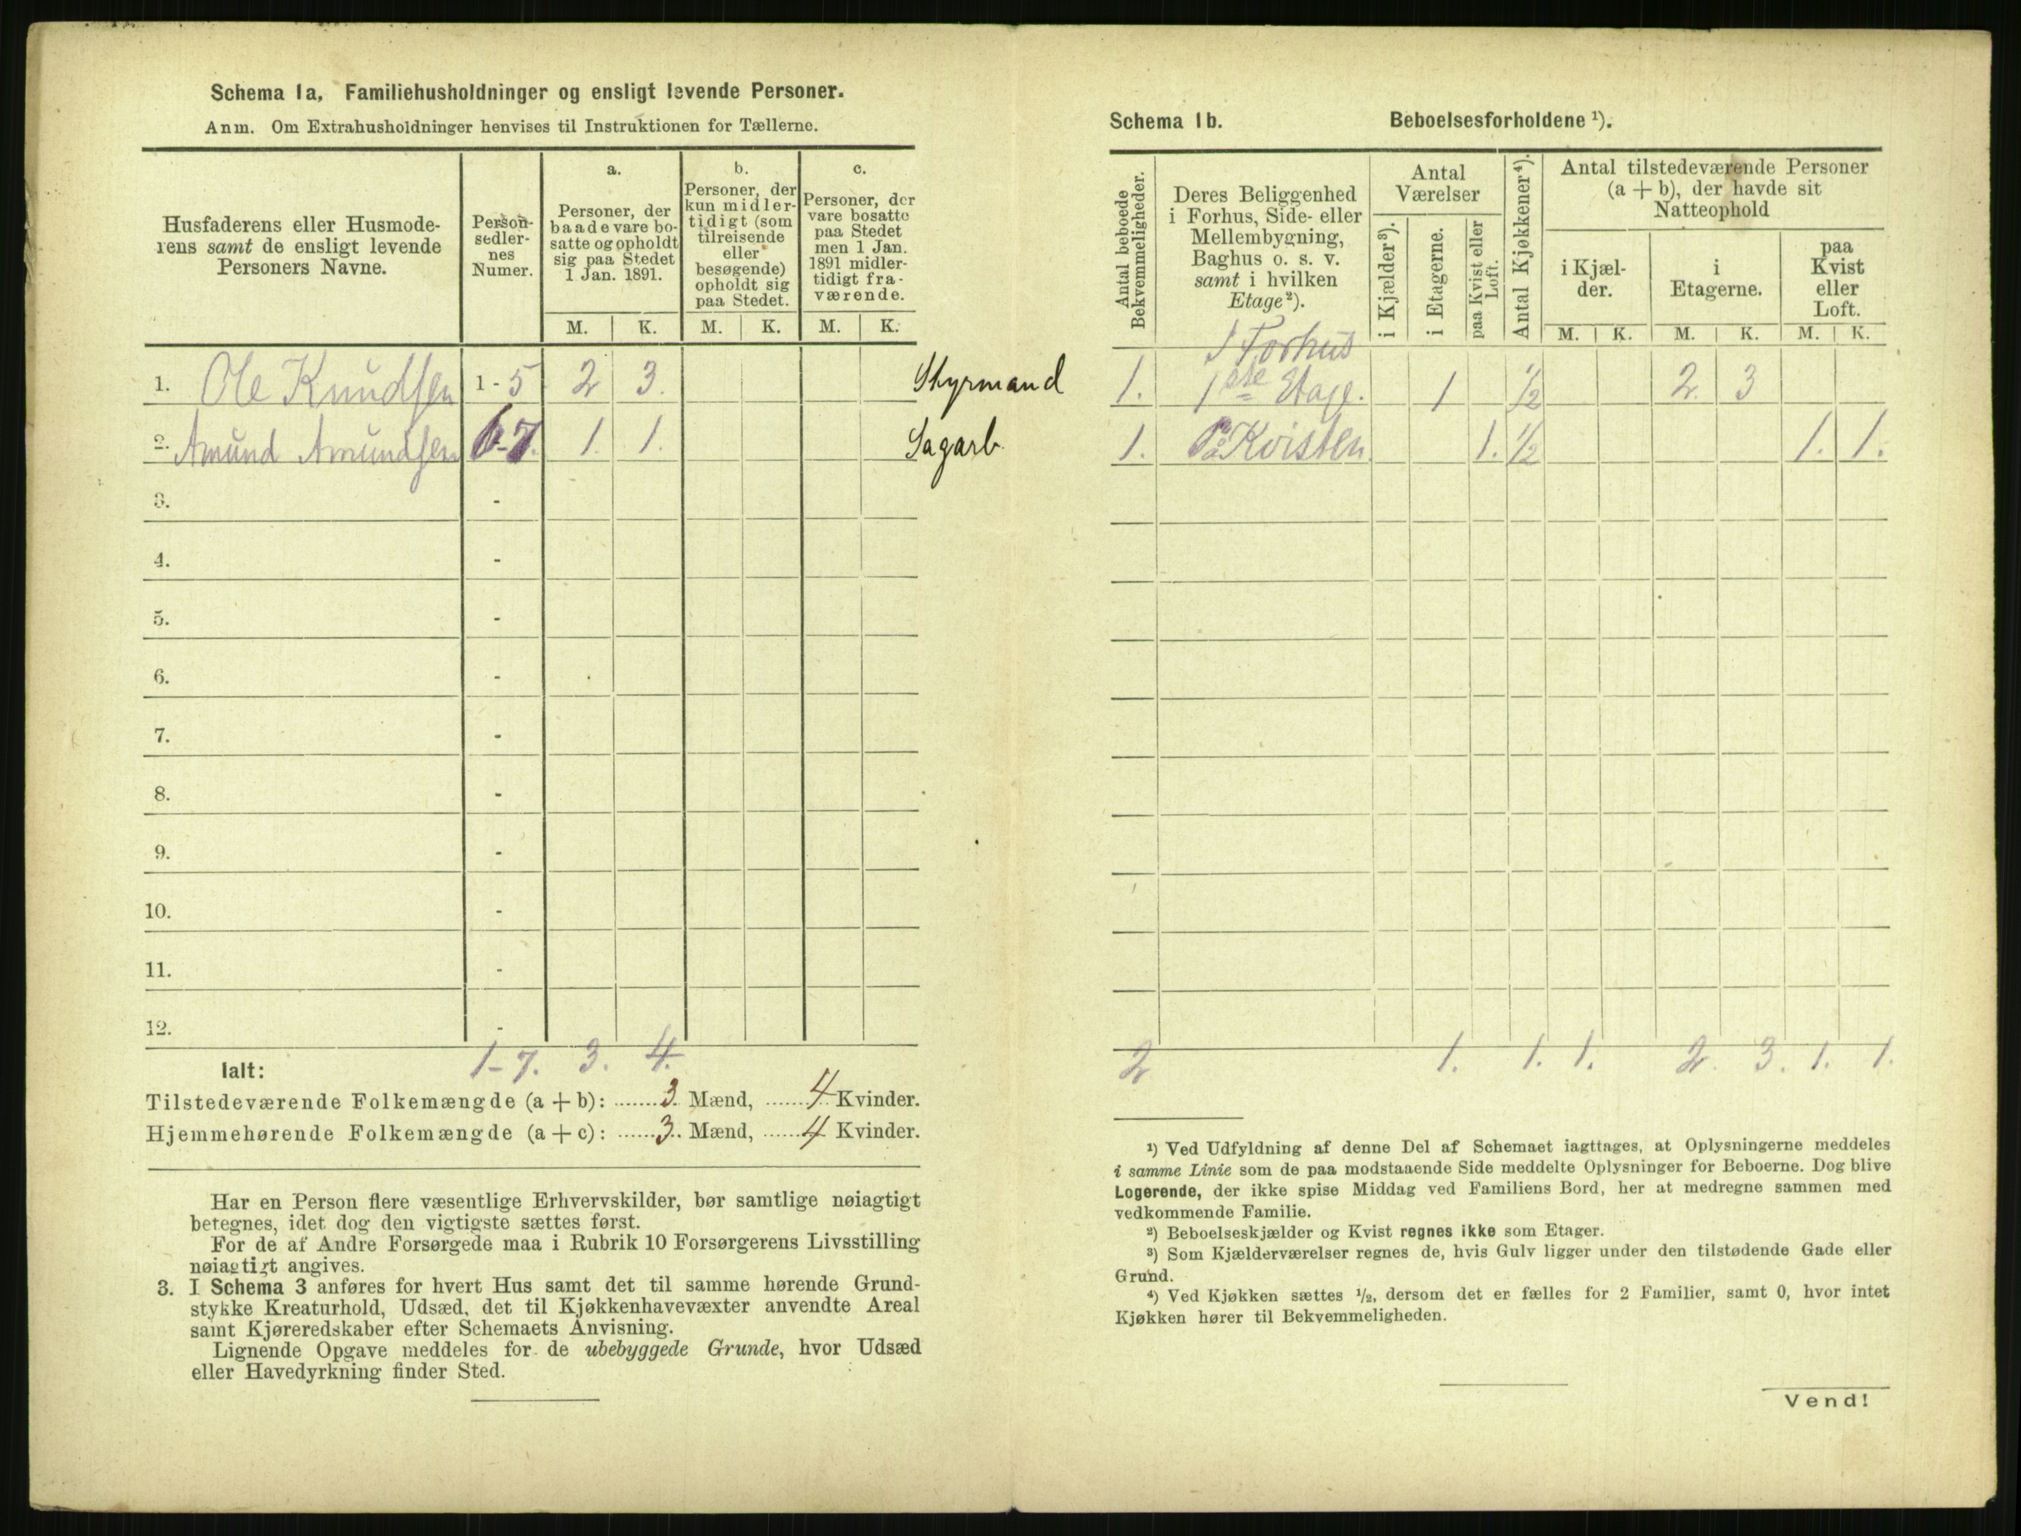 Schema 1a. Familiehusholdninger og ensligt levende Personer.
Anm. Om Extrahusholdninger henvises til Instruktionen for Tællerne.
Husfaderens eller Husmoderens samt de ensligt levende Personers Navne.
Personsedlernes Numer.
a. Personer, der baade vare bosatte og opholdt sig paa Stedet 1 Jan. 1891.
b. Personer, der kun midlertidigt (som tilreisende eller besøgende) opholdt sig paa Stedet.
c. Personer, der vare bosatte paa Stedet men 1 Jan. 1891 midlertidigt fraværende.
M. K. M. K. M. K.
1. Ole Knudsen 1 - 5 2 3. Styrmand
2. Amund Amundsen 6-7. 1. 1. Sagarb.
3. -
4. -
5. -
6. -
7. -
8. -
9. -
10. -
11. -
12. -
Ialt: 1-7. 3. 4.
Tilstedeværende Folkemængde (a + b): 3 Mænd, 4 Kvinder.
Hjemmehørende Folkemængde (a + c): 3 Mænd, 4 Kvinder.
Har en Person flere væsentlige Erhvervskilder, bør samtlige nøiagtigt
betegnes, idet dog den vigtigste sættes først.
For de af Andre Forsørgede maa i Rubrik 10 Forsørgerens Livsstilling
nøiagtigt angives.
3. I Schema 3 anføres for hvert Hus samt det til samme hørende Grund-
stykke Kreaturhold, Udsæd, det til Kjøkkenhavevæxter anvendte Areal
samt Kjøreredskaber efter Schemaets Anvisning.
Lignende Opgave meddeles for de ubebyggede Grunde, hvor Udsæd
eller Havedyrkning finder Sted.
Schema 1b. Beboelsesforholdene ¹).
Antal beboede Bekvemmeligheder.
Deres Beliggenhed i Forhus, Side- eller Mellembygning, Baghus o. s. v. samt i hvilken Etage²).
Antal Værelser
i Kjælder³).
i Etagerne.
paa Kvist eller Loft.
Antal Kjøkkener⁴).
Antal tilstedeværende Personer (a + b), der havde sit Natteophold
i Kjælder.
i Etagerne.
paa Kvist eller Loft.
M. K. M. K. M. K.
I Forhus
1. 1ste Etage. 1 ½ 2. 3
1. Paa Kvisten 1. ½ 1. 1.
2 1. 1. 1. 2. 3. 1. 1.
¹) Ved Udfyldning af denne Del af Schemaet iagttages, at Oplysningerne meddeles
i samme Linie som de paa modstaaende Side meddelte Oplysninger for Beboerne. Dog blive
Logerende, der ikke spise Middag ved Familiens Bord, her at medregne sammen med
vedkommende Familie.
²) Beboelseskjælder og Kvist regnes ikke som Etager.
³) Som Kjælderværelser regnes de, hvis Gulv ligger under den tilstødende Gade eller
Grund.
⁴) Ved Kjøkken sættes ½, dersom det er fælles for 2 Familier, samt 0, hvor intet
Kjøkken hører til Bekvemmeligheden.
Vend!